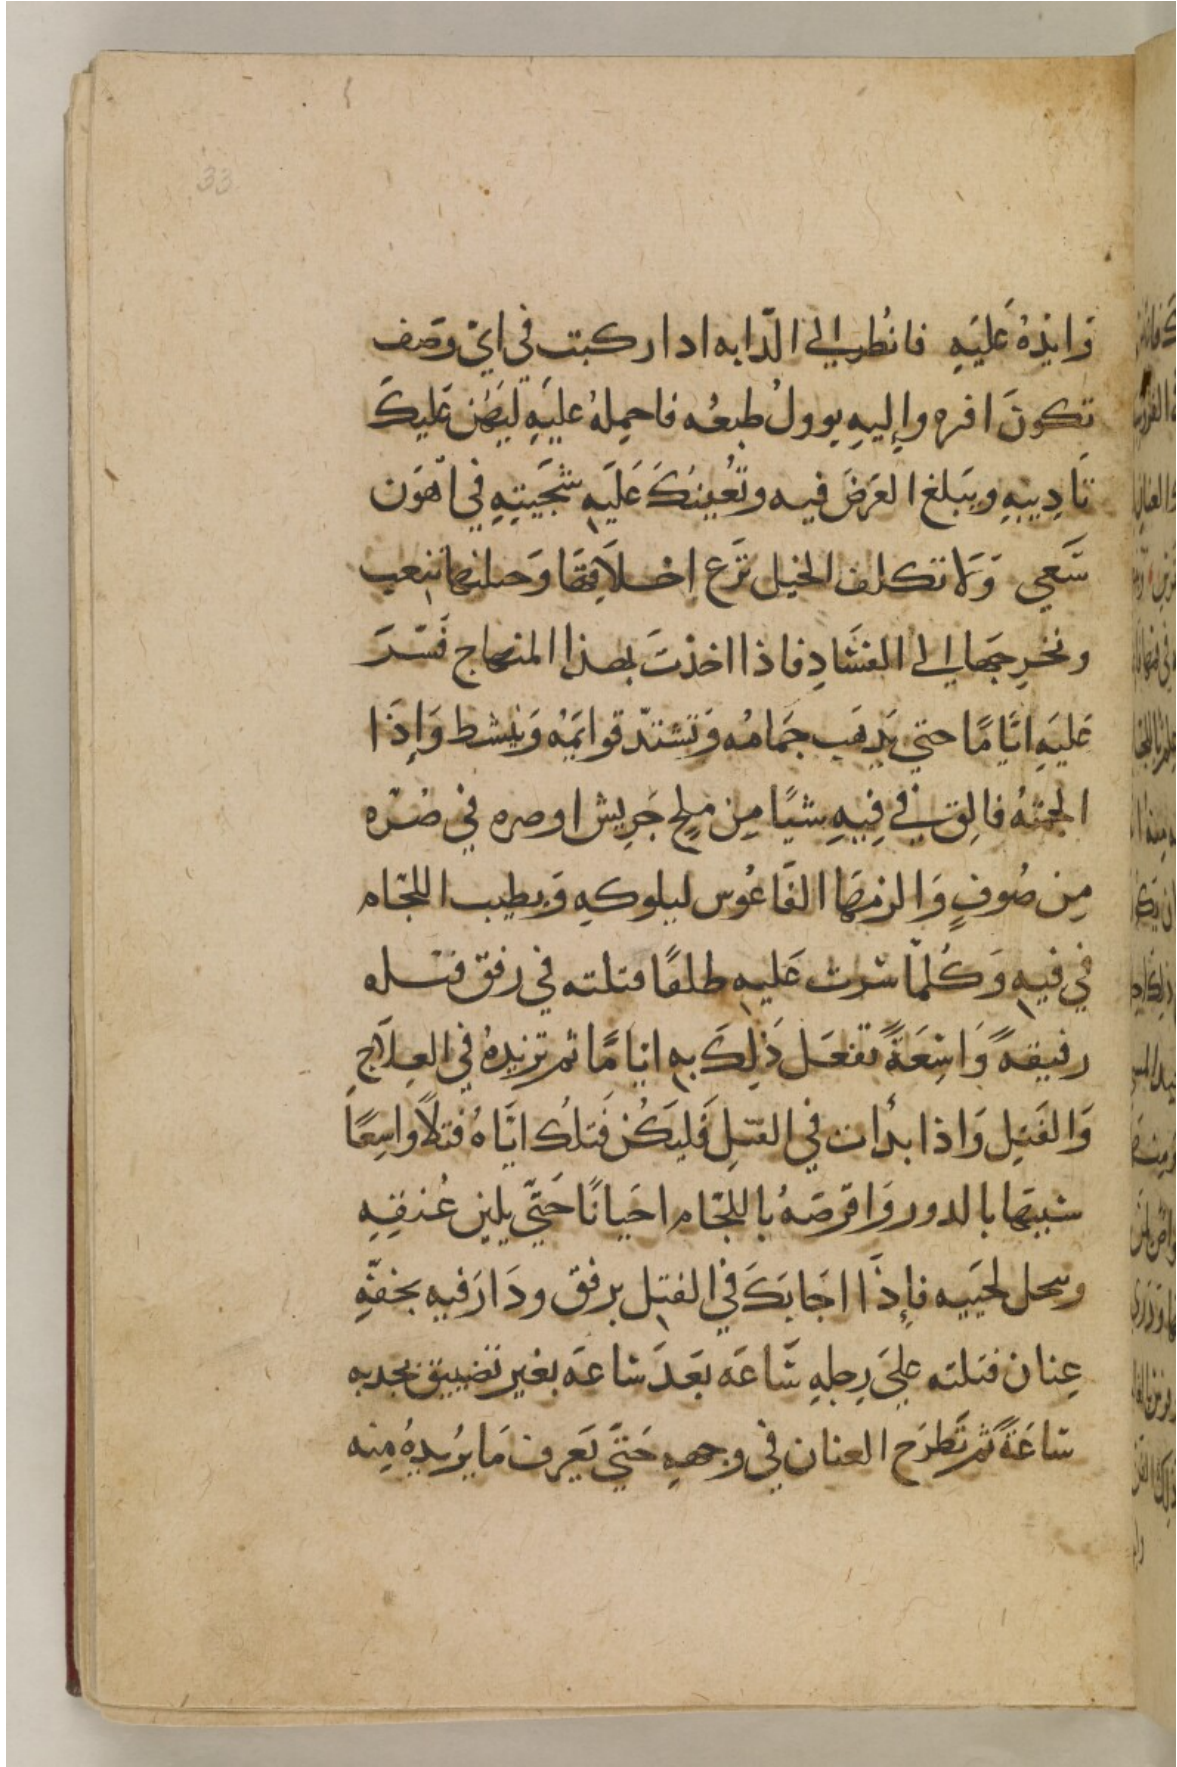 33
وَايِدُهُ عَلَيَهِ فانُطر الي الدّابه ادا ركبت في ايّ وصف
تكونَ افره وإليهِ يوولُ طبعُه فاحمِلهُ عليَهِ ليَهُن عَليكَ
تَادِيبِهِ ويبَلغ العَرَضَ فيه وتُعُينكَ عَلَيَهِ سَجَيتِهِ في اهْوَن
سَعَي وَلا تكلف الخيل نَزَع اخلاَقِهَا وَحملتها تتعب
وتخرِجهَا الي الفسَادِ فاذا اخذتَ بهذا المنهاج فَسّرَ
عَليَهِ ايَّامًا حتي يَذهَب جَمَامُه وَتشتدّ قوايمُه وَينشط وَإذَا
الجمتهُ فالِق في فِيهِ شيًا مِن مِلح جَرِيش او صره في صُرّه
مِن صُوفٍ وَالزمهَا الفَاعُوس ليلوكهِ وَيطيب اللجَام
في فيهِ وَكُلمّا سرت عَليهِ طلقًا فتلته في رفق فتله
رفيقهً وَاسِعَةً تفعَل ذَلِكَ به ايامًا ثم تزيدهُ في العِلاَجِ
وَالفَتِل وَاذا بدأت في الفتلِ فَليَكُن فَتلُك ايَّاهُ فتلاً واسِعًا
شبيهًا بالدور وَاقرصَهُ باللجَام احَيانًا حَتّي يلين عُنقِهِ
وسحل لحَييه فإذَا اجَابَكَ في الفتل برفق ودَارَ فيه بخفّهِ
عِنان فتلته علَي رِجلِهِ سَاعَه بَعدَ سَاعَه بغير تضييق بجدبه
سَاعَةً ثم تَطرَح العنان في وجههِ حَتيَّ يَعرف مَا يرُيدهُ مِنه